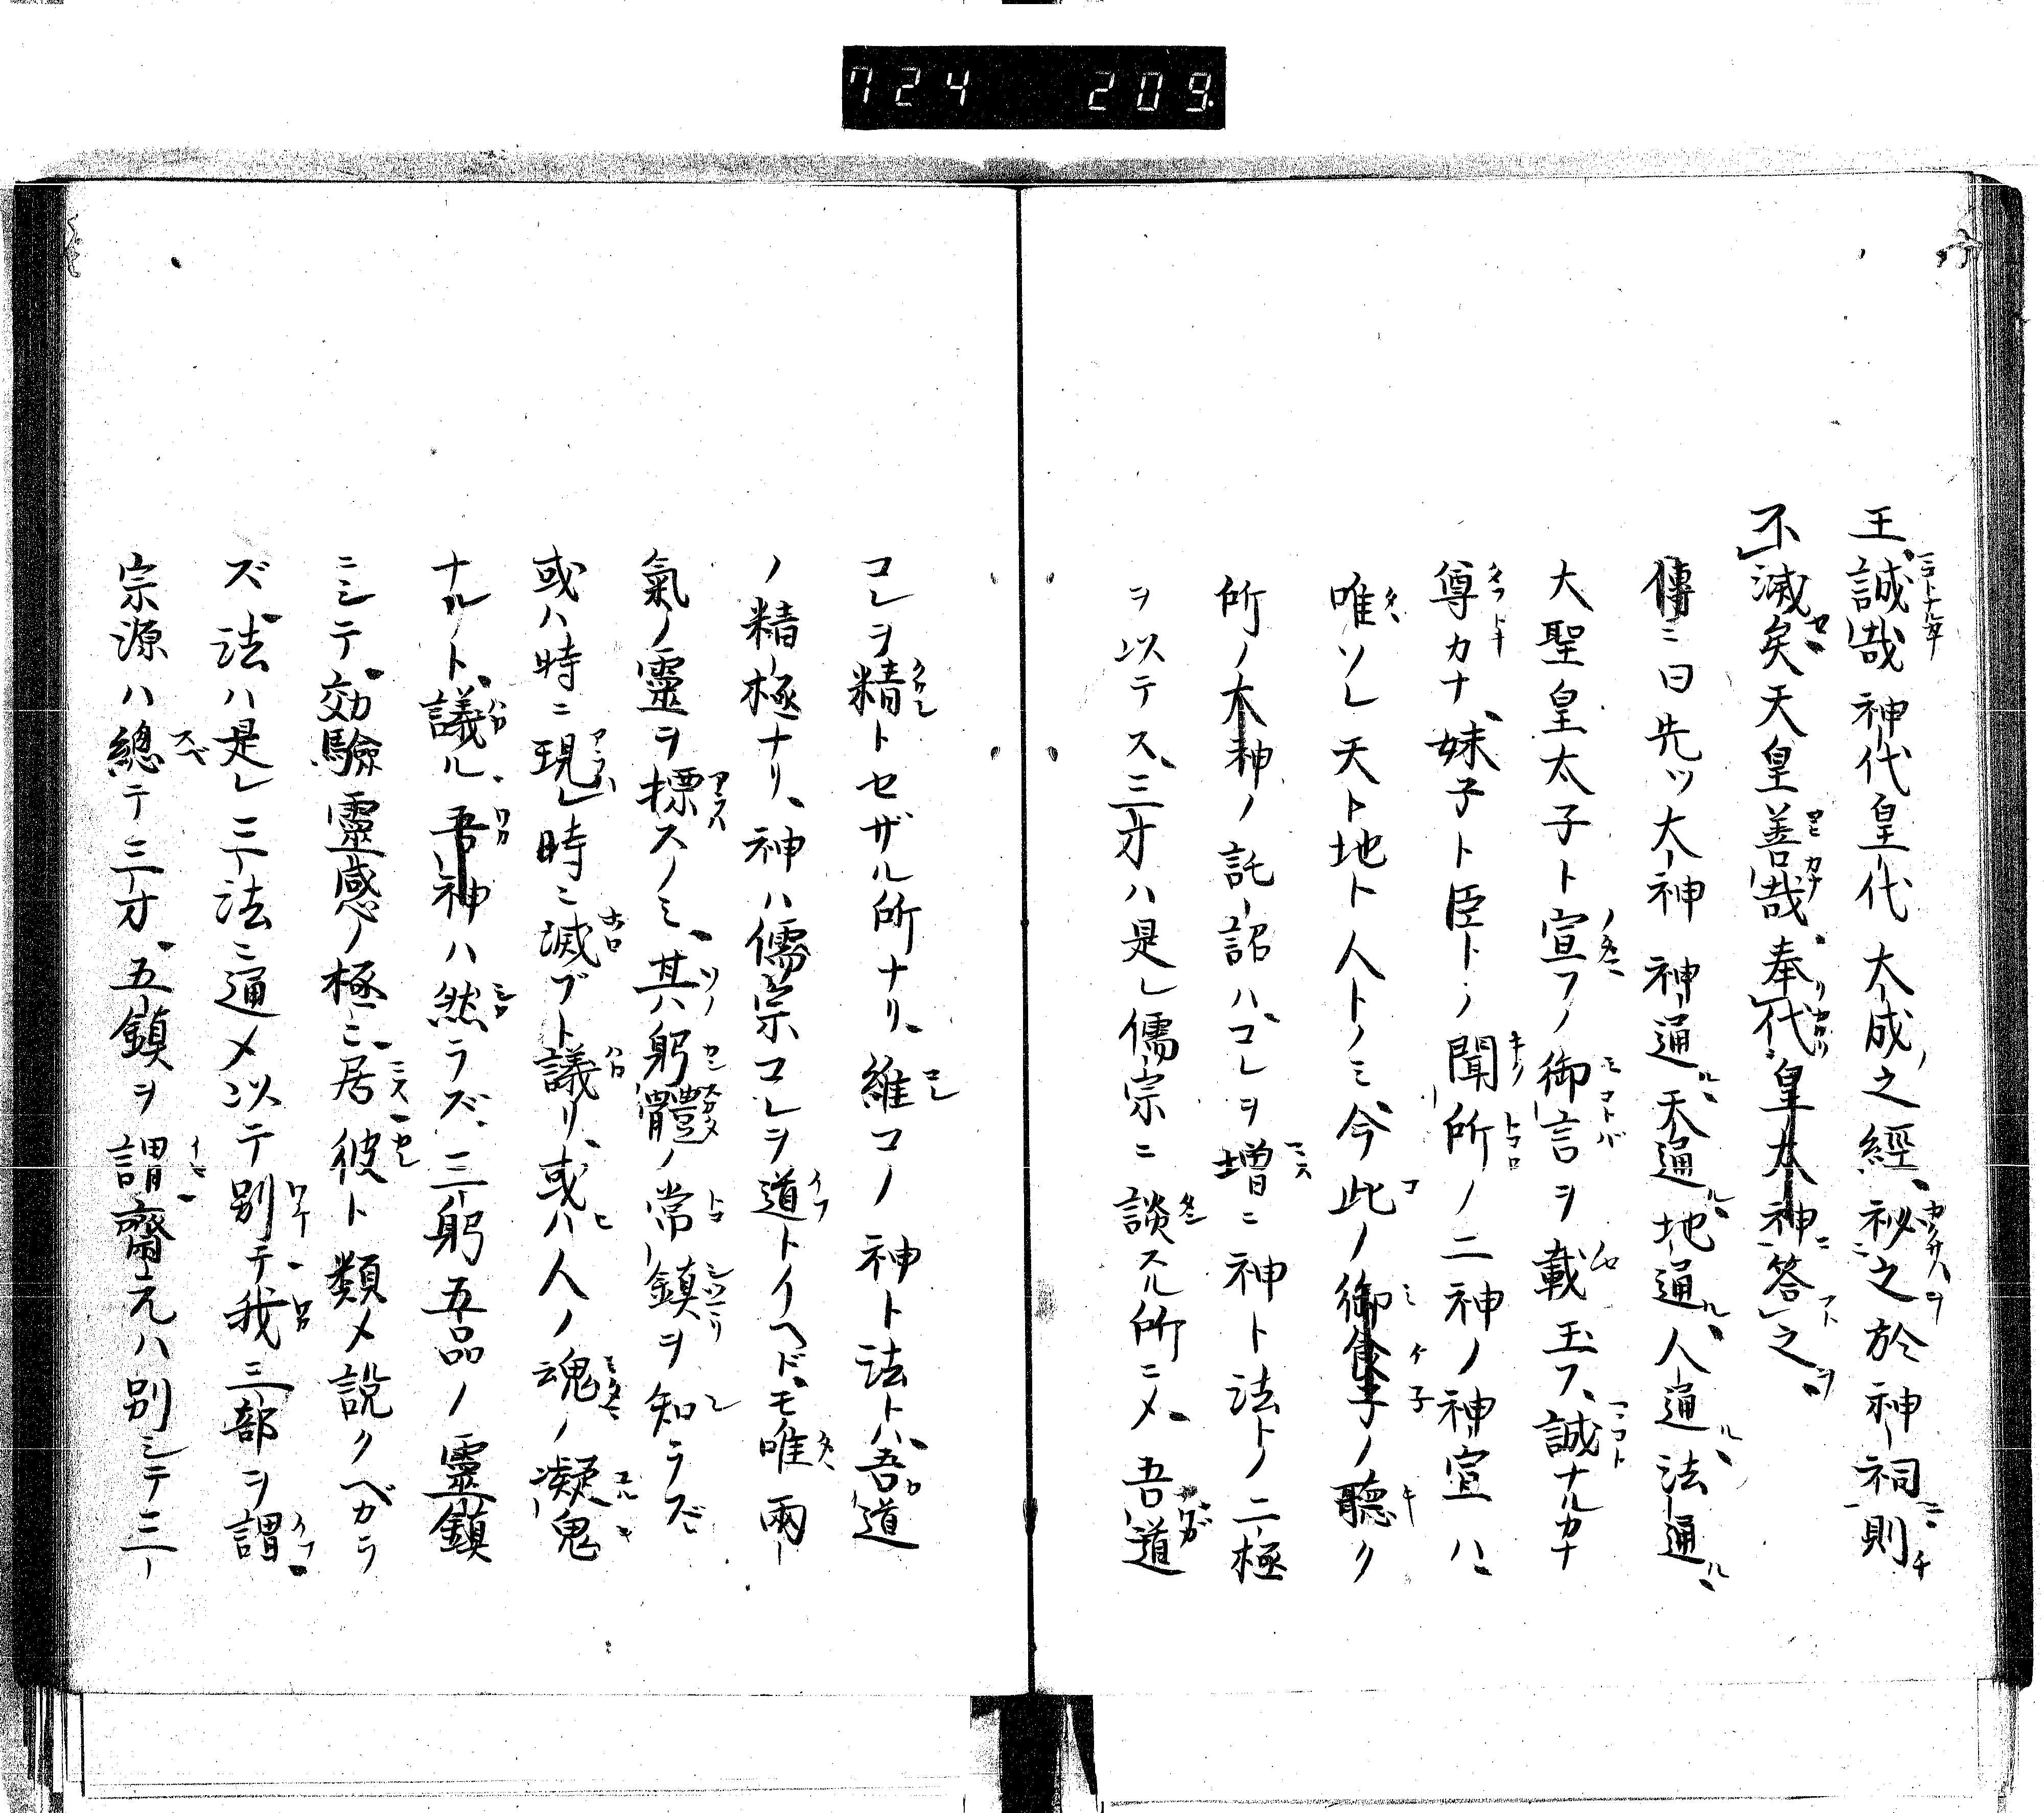 724 209
王誠哉神代皇代大成之經秘之於神祠則
不滅矣天皇善哉奉代皇太神答之
傳ニ曰先ツ大神神通天通地通人通法通
大聖皇太子ト宣フノ御言ヲ載玉フ誠ナルカナ
尊カナ妹子ト臣トノ聞所ノ二神ノ神宣ハ
唯ソレ天ト地ト人トノミ今此ノ御食子ノ聽ク
所ノ太神ノ託詔ハコレヲ増ニ神ト法トノ二極
ヲ以テス三才ハ是レ儒宗ニ談スル所ニメ吾道
コレヲ精トセザル所ナリ維コノ神ト法トハ吾道
ノ精極ナリ神ハ儒宗コレヲ道トイヘドモ唯兩
氣ノ靈ヲ標スノミ其ハ躬體ノ常鎮ヲ知ラズ
或ハ時ニ現レ時ニ滅ブト議リ或ハ人ノ魂ノ凝鬼
ナルト議ル吾神ハ然ラズ三躬五品ノ靈鎮
ニシテ効驗靈感ノ極ニ居彼ト類メ説クベガラ
ズ法ハ是レ三法ニ通メ以テ別テ我三部ヲ謂
宗源ハ總テ三才五鎮ヲ謂齋元ハ別シテ三